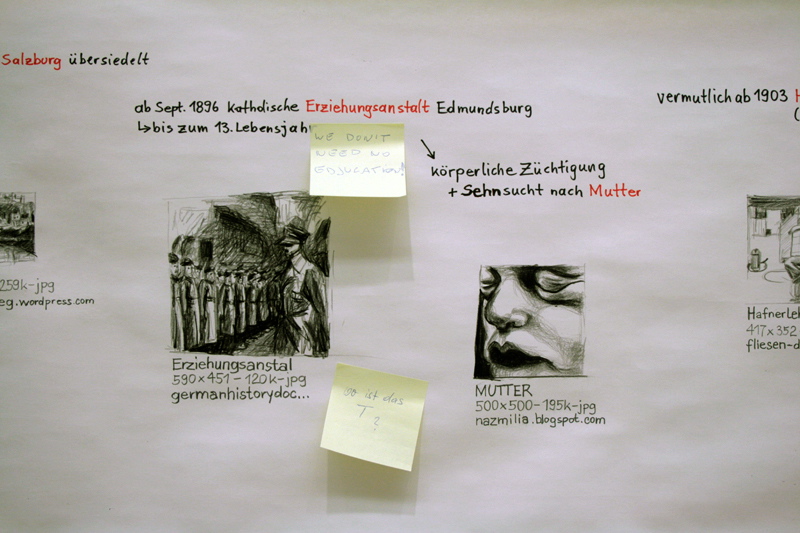 Salzburg übersiedelt
ab Sept. 1896 katholische Erziehungsanstalt Edmundsburg
↳bis zum 13. Lebensjah
vermutlich ab 1903 H
(
WE DON'T
NEED NO
EDJUCATION!
körperliche Züchtigung
+ Sehnsucht nach Mutter
259k-jpg
eg.wordpress.com
Erziehungsanstal
590×451-120k-jpg
germanhistorydoc...
wo ist das
T?
MUTTER
500×500-195k-jpg
nazmilia.blogspot.com
Hafnerleh
417×352
fliesen-d